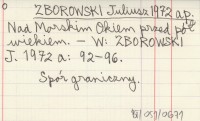 ZBOROWSKI Juliusz 1972 ap.
Nad Morskim Okiem przed pół
wiekiem. – W: ZBOROWSKI
J. 1972 a: 92-96.
Spór graniczny.